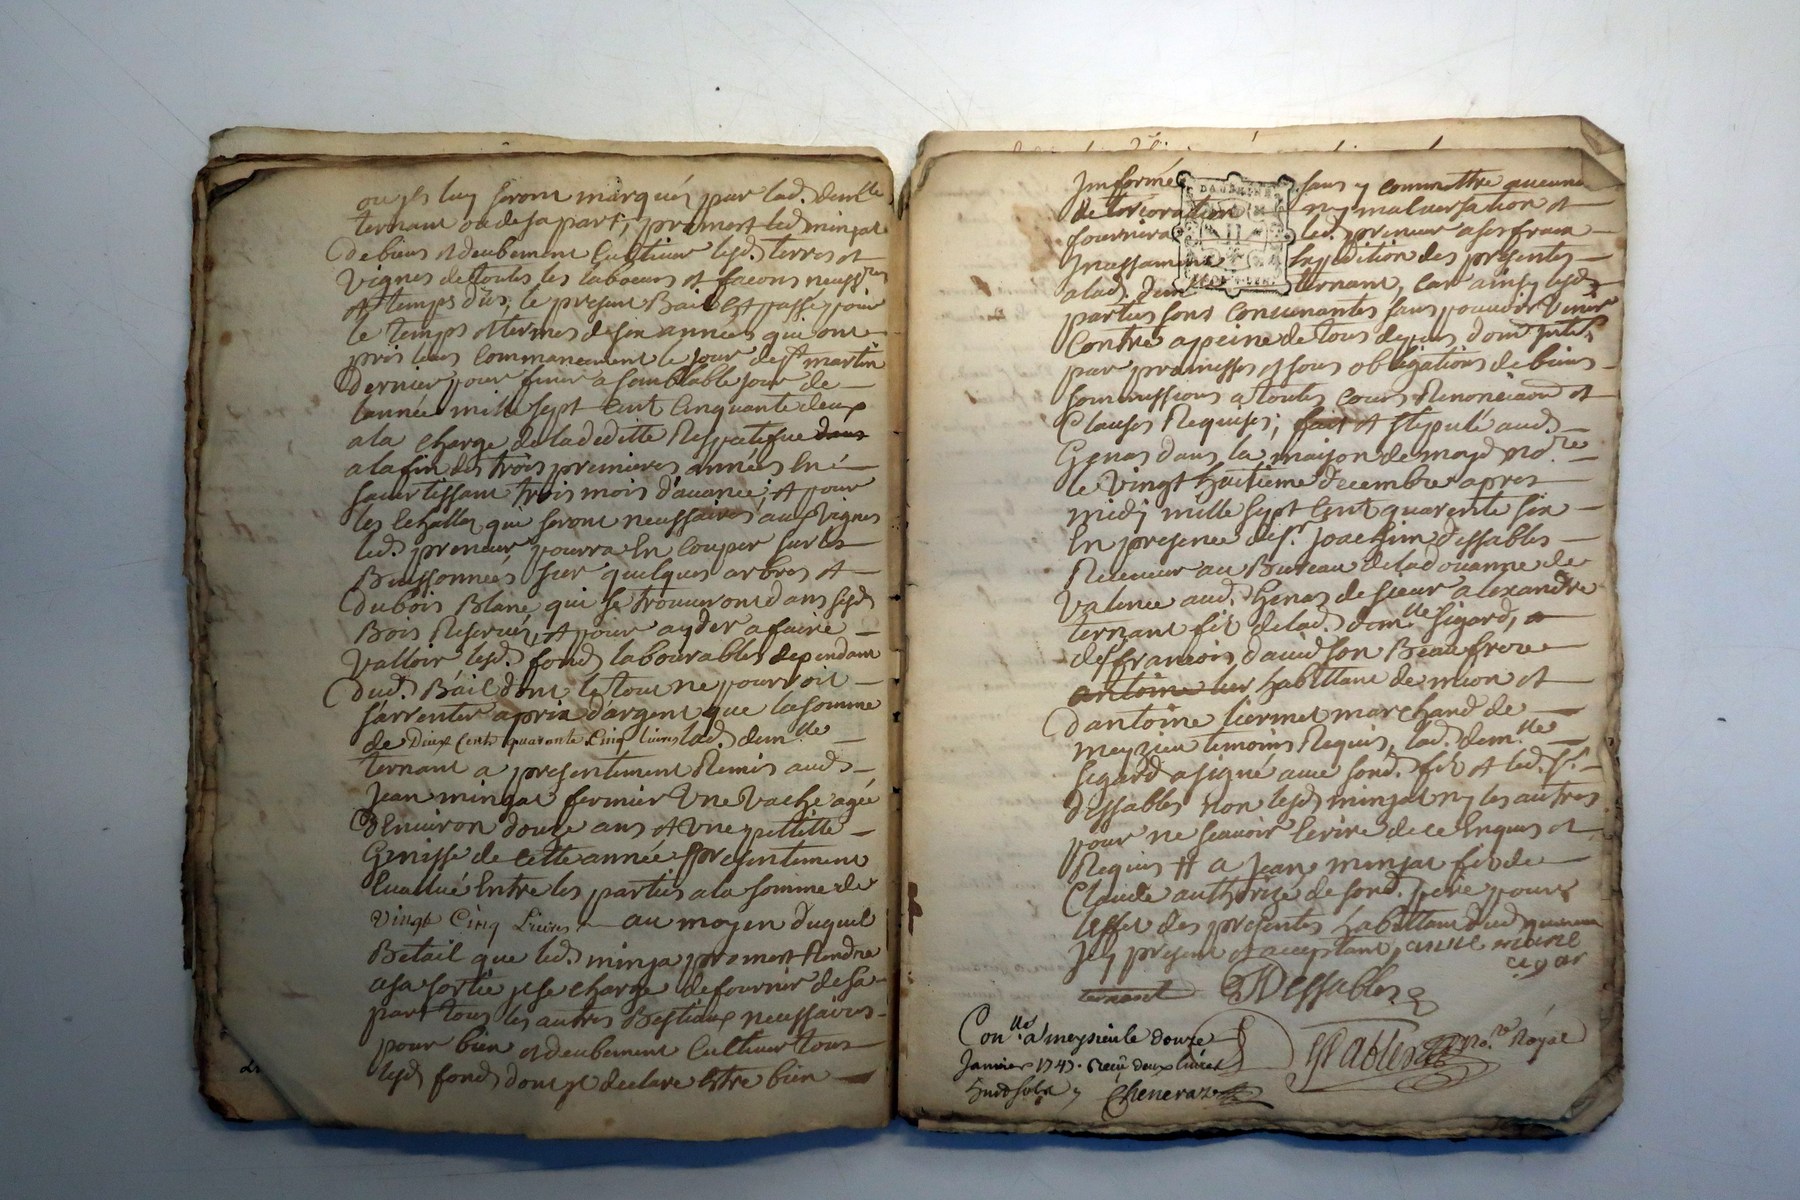 ou ils luy seront marqués par lad. demlle
ternant ou de sa part, promest led. minjat
de bien et deubement Cultiver lesd. terres et
vignes de toutes les labours et facons neussres
et temps dus, le present Bail est passé pour
le temps et termes de six années qui ont
pris leurs commancement le jour de st martin
dernier pour finir a semblable jour de
lannée mille sept cent cinquante deux
a la charge de la deditte Respective
a la fin des trois premieres années En
savertissant trois mois d'avance, et pour
les Echallas qui seront neussaires aux vignes
led. preneur pourra En couper sur les
Buissonnées sur quelques arbres et
du bois Blanc qui se trouveront dans lesd.
Bois Reservés, et pour ayder a faire
valloir lesd. fonds labourables dependant
dud. Bail dont le tout ne pourroit
s'arrenter a prix d'argent que la somme
de Deux Cents quarante Cinq livres lad. demlle
ternant a presentement Remis aud.
Jean minjat fermier Une Vache agée
d'Environ douze ans et Une petitte
Genisse de cette année presentement
Evalluée Entre les parties a la somme de
vingt Cinq Livres au moyen duquel
Betail que led. minja promest Rendre
a sa sortie, il se charge de fournir de sa
part tous les autres Bestiaux neussaires
pour bien et deubement Cultiver tous
lesd. fonds dont il declare estre bien
Jnformé sans y commettre aucune
deterioration ny malversation et
fournira led. preneur a ses frais
Jncessament Expedition des presentes
a lad. demlle ternant, Car ainsy lesd.
parties sont convenantes sans pouvoir venir
Contre a peine de tous depens dom. Jnterts
par promesses et sous obligations de biens
soumissions a toutes cours Renonciaon et
Clauses Requises; fait et stipulé aud.
Genas dans la maison de moyd. nore
le vingt huitieme decembre apres
midy mille sept Cent quarente six
En presence de sr. Joachim dessables
Receveur au Bureau de la douanne de
Valence aud. Genas de sieur alexandre
ternant fils de lad. demlle sigard,
de francois david son Beau frere
habittant de mion et
d'antoine liermet marchand de
meyzieu temoins Requis, lad. demlle
Sigard a signé avec sond. fils et led. sr.
dessables non lesd. minjat ny les autres
pour ne scavoir Ecrire de ce Enquis et
Requis # a Jean minjat fils de
Claude authorizé de sond. pere pour
leffet des presentes habittant dud.
Jcy present et acceptant, anne marie
cigar
ternant Dessables
Conllé a meysieu le douze
Janvier 1747. Recu douze livres
huit sols Chenerat
Nore Royal
DAUPHINE